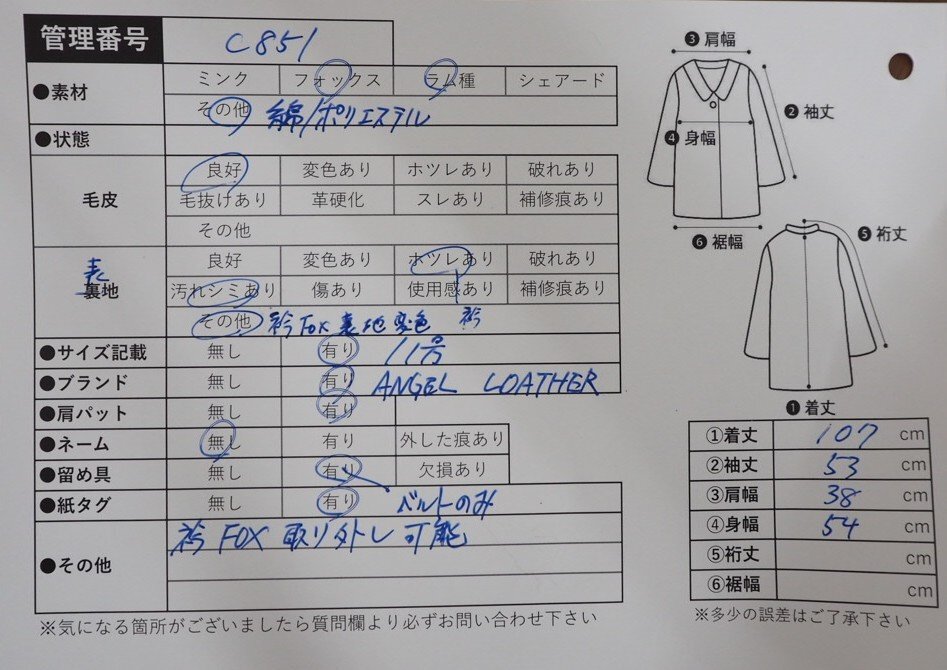 管理番号 C851
●素材 ミンク フォックス ラム種 シェアード
その他 綿/ポリエステル
●状態
毛皮 良好 変色あり ホツレあり 破れあり
毛抜けあり 革硬化 スレあり 補修痕あり
その他
表
裏地 良好 変色あり ホツレあり 破れあり
汚れシミあり 傷あり 使用感あり 補修痕あり
その他 衿FOX裏地変色 衿
●サイズ記載 無し 有り 11号
●ブランド 無し 有り ANGEL LOATHER
●肩パット 無し 有り
●ネーム 無し 有り 外した痕あり
●留め具 無し 有り 欠損あり
●紙タグ 無し 有り ベルトのみ
●その他 衿FOX取り外し可能
※気になる箇所がございましたら質問欄より必ずお問い合わせ下さい
❸肩幅
❷袖丈
❹身幅
❻裾幅
❺裄丈
❶着丈
①着丈 107 cm
②袖丈 53 cm
③肩幅 38 cm
④身幅 54 cm
⑤裄丈 cm
⑥裾幅 cm
※多少の誤差はご了承下さい